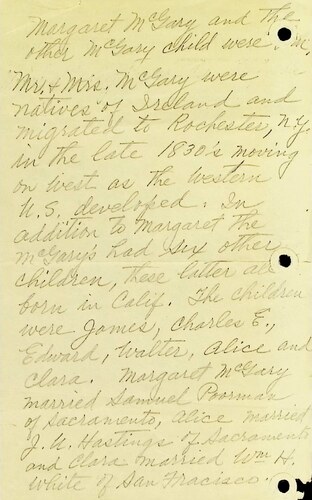 Margaret McGary and the
other McGary child were
Mr. & Mrs. McGary were
natives of Ireland and
migrated to Rochester, N.Y.
in the late 1830's moving
on west as the western
U.S. developed. In
addition to Margaret the
McGary's had six other
children, these latter all
born in Calif. The children
were James, Charles E.,
Edward, Walter, Alice and
Clara. Margaret McGary
married Samuel Poorman
of Sacramento, Alice married
J. U. Hastings of Sacramento
and Clara married Wm H.
White of San Francisco.